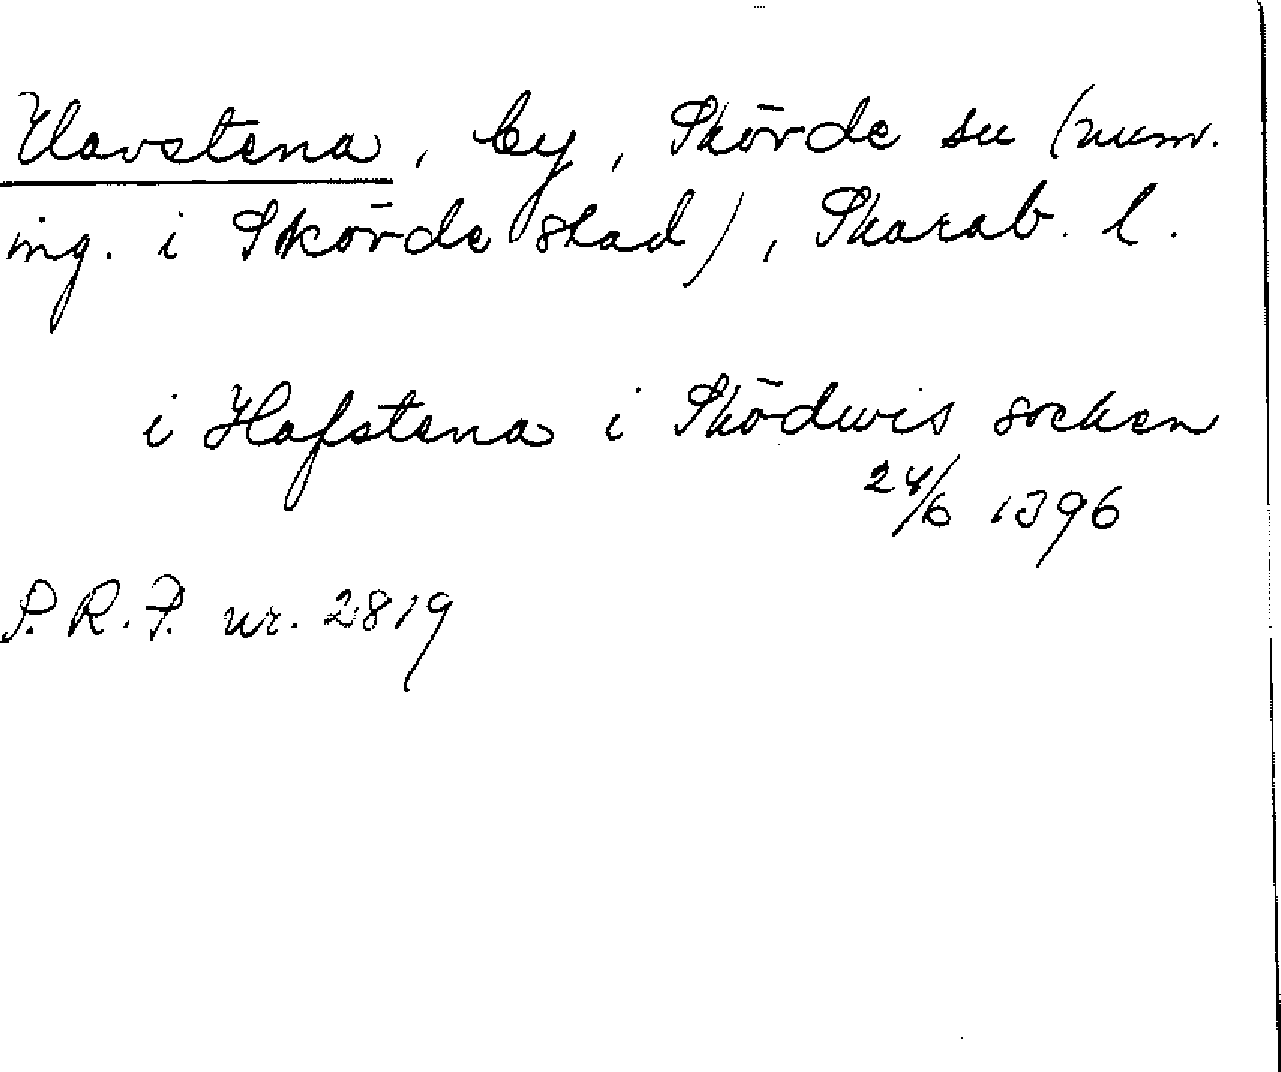 Havstena, by, Skövde sn (num.
ing. i Skövde stad), Skarab. l.
i Hafstena i Sködwis socken
24/6 1396
P.R.P. nr. 2819